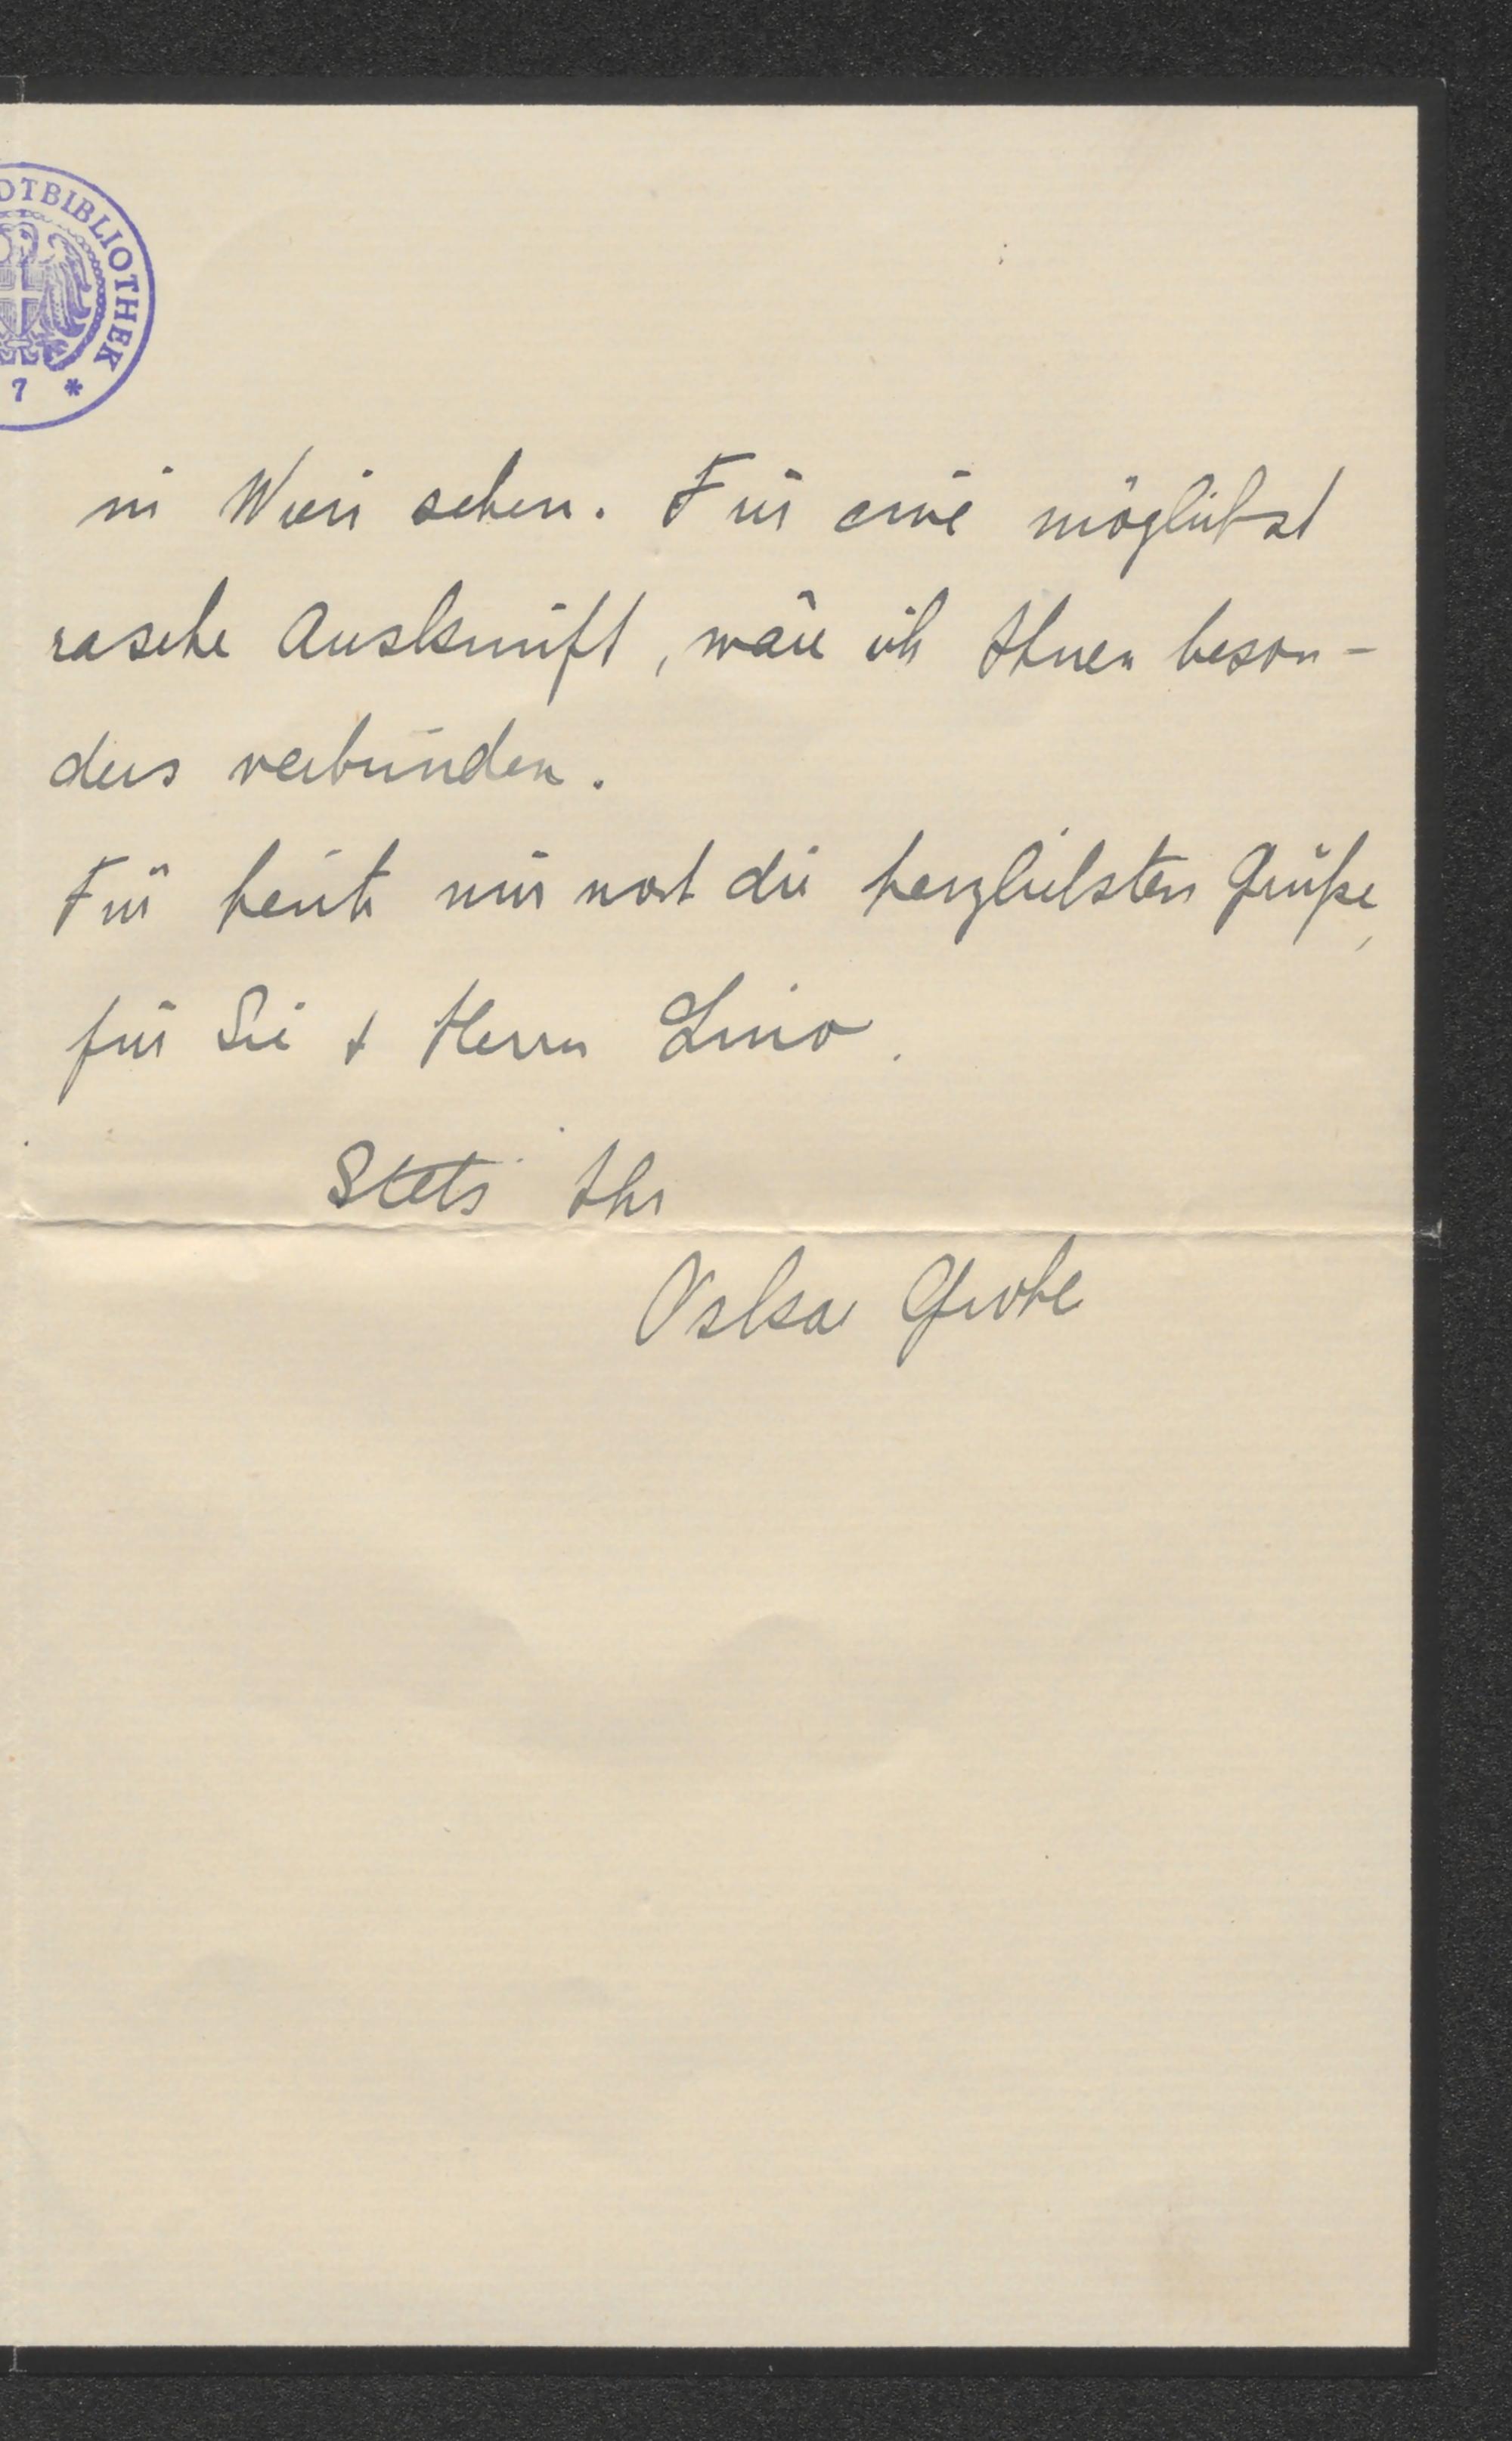 DTBIBLIOTHEK
7 *
in Wien sehen. Für eine möglichst
rasche Auskunft, wäre ich Ihnen beson-
ders verbunden.
Für heute nur noch die herzlichsten Grüße,
für Sie & Herrn Lino.
Stets Ihr
Oskar Grohe